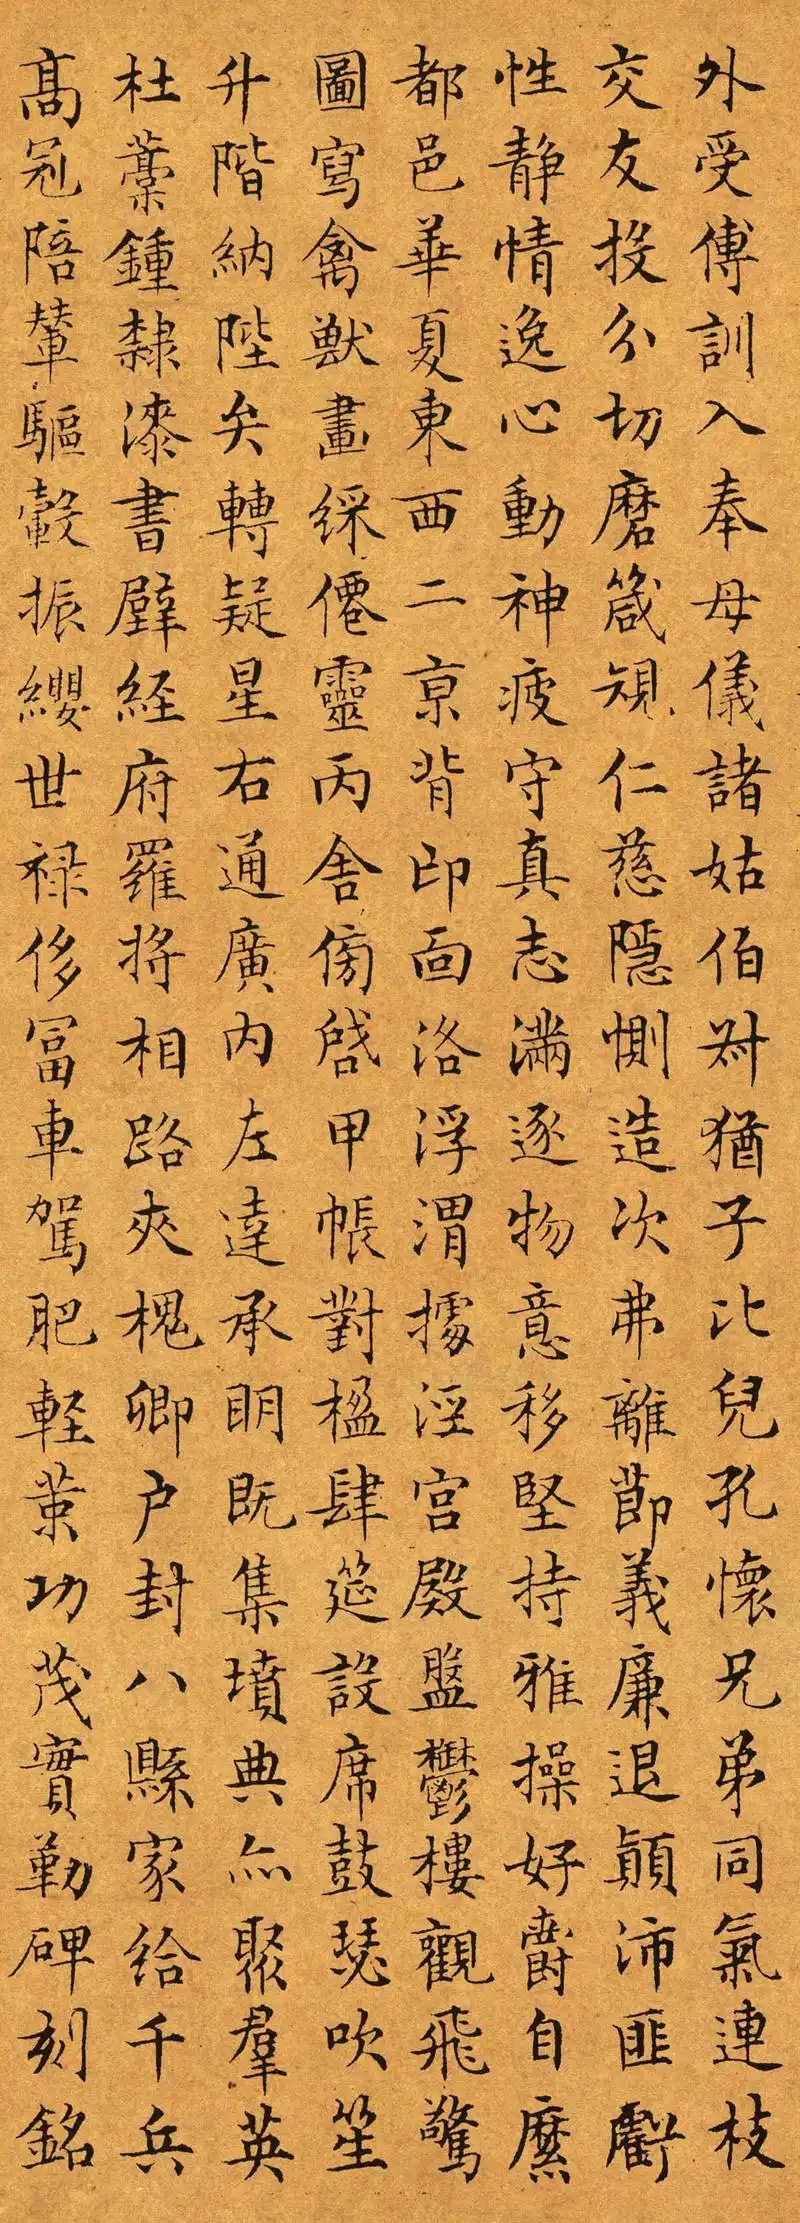 外受傅訓入奉母儀諸姑伯叔猶子比兒孔懷兄弟同氣連枝
交友投分切磨箴規仁慈隱惻造次弗離節義廉退顛沛匪虧
性静情逸心動神疲守真志滿逐物意移堅持雅操好爵自縻
都邑華夏東西二京背邙面洛浮渭據涇宮殿盤鬱樓觀飛驚
圖寫禽獸畫綵僊靈丙舍傍啓甲帳對楹肆筵設席鼓瑟吹笙
升階納陛弁轉疑星右通廣内左達承明既集墳典亦聚群英
杜藁鍾隸漆書壁経府羅將相路夾槐卿户封八縣家給千兵
髙冠陪輦驅轂振纓世禄侈富車駕肥軽策功茂實勒碑刻銘